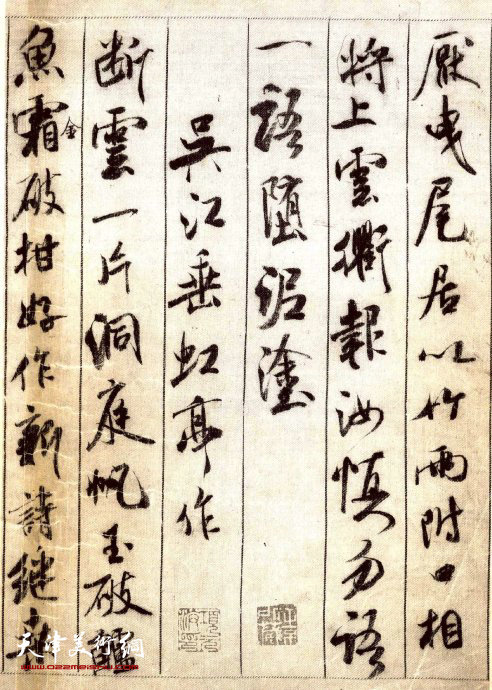 厭曳尾居以竹兩附口相
將上雲衢報汝慎勿語
一語墮泥塗
吳江垂虹亭作
斷雲一片洞庭帆玉破鱸
魚霜金破柑好作新詩繼桑
天津美術網